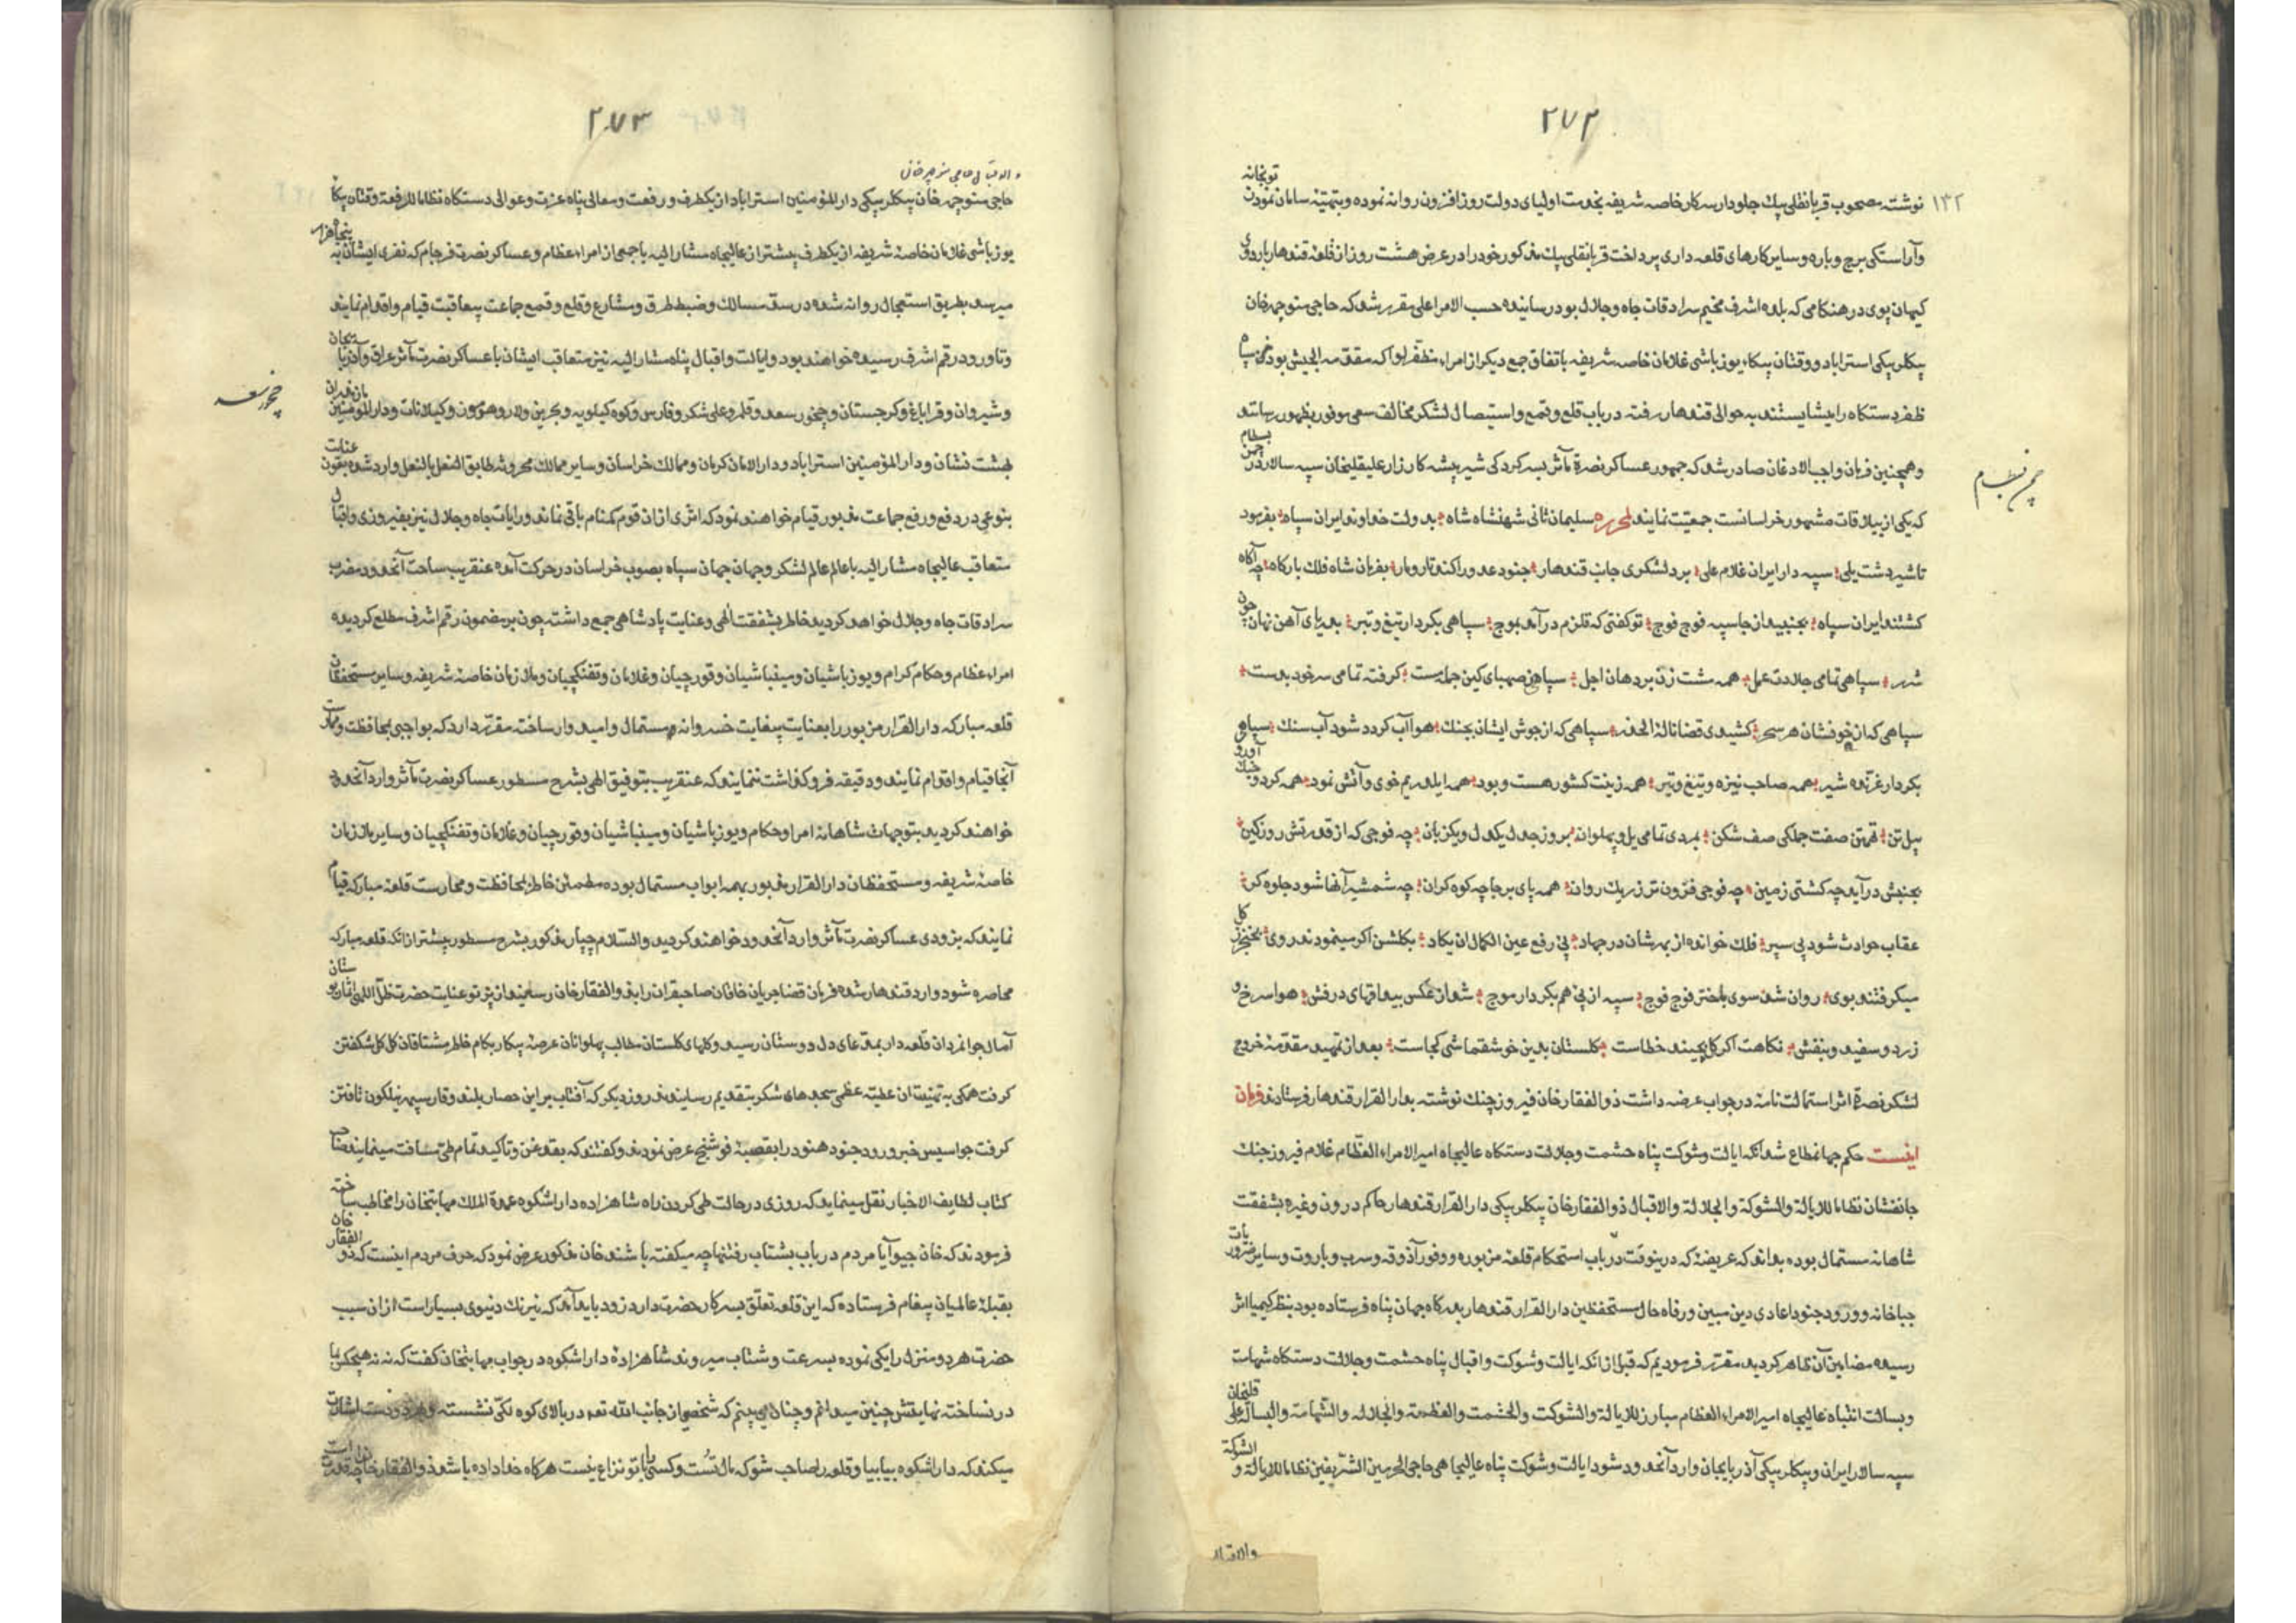 ۲۷۲
توپخانه
۱۳۲ نوشته مصحوب قربانقلی بیك جلودار سرکار خاصه شریفه بخدمت اولیای دولت روزافزون روانه نموده و بتهیّه سامان نمودن
وآراستکی برج و باره و سایر کارهای قلعه داری پرداخت قربانقلی بیك مذکور خود را در عرض هشت روز از قلعه قندهار باردوی
کیهان پوی در هنکامی که بلده اشرف مخیم سرادقات جاه و جلال بود رسانیده حسب الامر اعلی مقرر شد که حاجی منوچهر خان
بیکلربیکی استراباد و یوزباشی غلامان خاصه شریفه باتفاق جمع دیکر از امراء مظفّر لوا که مقدّمه الجیش بود
ظفر دستکاه را میشایستند به حوالی قندهار رفته در باب قلع و قمع و استیصال لشکر مخالف سعی موفور بظهور رسانند
چمن بسطام
وهمچنین فرمان واجب الاذعان صادر شد که جمهور عساکر نصرة مآثر بسرکردکی شیر بیشه کارزار علیقلیخان سپه سالار در
که یکی از ییلاقات مشهور خراسانست جمعیّت نمایند لمحرره سلیمان ثانی شهنشاه شاه بدولت خداوند ایران سپاه بفرمود
تا شیر دشت یلی سپه دار ایران غلام علی برد لشکری جانب قندهار جنود عدو را کند تارومار بفرمان شاه فلك بارکاه چه آکاه
کشتند ایران سپاه بجنبید از جا سپه فوج فوج توکفتی که قلزم درآمد بموج سپاهی بکردار تیغ و تبر بدریای آهن نهان چون
شرر سپاهی تمامی جلادت عمل همه مشت زن بر دهان اجل سپاهی ز صهبای کین جمله مست کرفته تمامی سر خود بدست
سپاهی که از خوفشان هر سحر کشیدی قضا نالۀ الحذر سپاهی که از جوش ایشان بجنك هوا آب کردد شود آب سنك سپاهی
بکردار غرّنده شیر همه صاحب نیزه و تیغ و تیر همه زینت کشور هست و بود همه ابله ریم خوی و آتش نمود همه کرد و
پیل تن تهمتن صفت جملکی صف شکن بمردی تمامی یل و پهلوان بروز جدل یکدل و یکزبان چه فوجی که از قدرتش روز کین
بجنبش درآید چه کشتی زمین چه فوجی فزون تر ز ریك روان همه پای برجا چه کوه کران چه شمشیر آنها شود جلوه کر
عقاب حوادث شود بی سپر فلك خوانده از بهرشان در جهاد پی رفع عین الکمال ان یکاد بکلشن اکر مینمودند روی بخنجر ز کل
میکرفتند بوی روان شد سوی باختر فوج فوج سپه از پی هم بکردار موج شد از عکس بیدقهای درفش هوا سرخ و
زرد و سفید و بنفش نکاهت اکر کل بچیند خطاست کلستان بدین خوشقماشی کجاست بعد از تمهید مقدّمه خروج
لشکر نصرة اثر استمالت نامه در جواب عرضه داشت ذوالفقار خان فیروز جنك نوشته بدار القرار قندهار فرستادند فرمان
اینست حکم جهانمطاع شد آنکه ایالت و شوکت پناه حشمت و جلالت دستکاه عالیجاه امیر الامراء العظام غلام فیروز جنك
جانفشان نظاما للایالة والشوکة والجلالة والاقبال ذوالفقار خان بیکلربیکی دار القرار قندهار حاکم درون و غیره بشفقت
شاهانه مستمال بوده بداند که عریضه که درینوقت در باب استحکام قلعه مزبوره و وفور آذوقه و سرب و باروت و سایر ضروریات
جباخانه و ورود جنود اعادی دین مبین و رفاه حال مستحفظین دار القرار قندهار بدرکاه جهان پناه فرستاده بود بنظر کیمیا اثر
رسیده مضامین آن ظاهر کردید مقرّر فرمودیم که قبل از آنکه ایالت و شوکت و اقبال پناه حشمت و جلالت دستکاه شهامت
وبسالت انتباه عالیجاه امیر الامراء العظام مبارزا للایالة والشوکت والحشمت والعظمة والجلاله والشهامة والبسالة علیقلیخان
سپه سالار ایران و بیکلربیکی آذربایجان وارد آنحدود شود ایالت و شوکت پناه عالیجاهی حاجی الحرمین الشریفین نظاما للایالة و الشوکة
والاقبال
چمن بسطام
۲۷۳
و الاقبال حاجی منوچهر خان
حاجی منوچهر خان بیکلربیکی دار المؤمنین استراباد از یکطرف و رفعت و معالی پناه عزت و عوالی دستکاه نظاما للرفعة
یوزباشی غلامان خاصه شریفه از یکطرف پیشتر از عالیجاه مشارالیه با جمعی از امراء عظام و عساکر نصرت فرجام که نفری ایشان به پنجاه هزار
میرسد بطریق استعجال روانه شده در سدّ مسالك و ضبط طرق و مشارع و قلع و قمع جماعت بیعاقبت قیام و اقدام نمایند
وتا ورود رقم اشرف رسیده خواهند بود و ایالت و اقبال پناه مشارالیه نیز متعاقب ایشان با عساکر نصرت مآثر عراق و آذربایجان
وشیروان و قراباغ و کرجستان و چخور سعد و قلمرو علی شکر و فارس و کوه کیلویه و بحرین و لار و هرموز و کیلانات و دار المؤمنین مازندران
بهشت نشان و دار المؤمنین استراباد و دار الامان کرمان و ممالك خراسان و سایر ممالك محروسه طابق النعل بالنعل وارد شده بعون عنایت
بنوعی در دفع و رفع جماعت مذبور قیام خواهند نمود که اثری از آن قوم کمنام باقی نماند و رایات جاه و جلال نیز بفیروزی و اقبال
متعاقب عالیجاه مشارالیه با عالم عالم لشکر و جهان جهان سپاه بصوب خراسان در حرکت آمده عنقریب ساحت آنحدود مضرب
سرادقات جاه و جلال خواهد کردید خاطر بشفقت الهی و عنایت پادشاهی جمع داشته چون بر مضمون رقم اشرف مطلع کردیده
امراء عظام و حکام کرام و یوزباشیان و مینباشیان و قورچیان و غلامان و تفنکچیان و ملازمان خاصه شریفه و سایر مستحفظان
قلعه مبارکه دار القرار مزبور را بعنایت بیغایت خسروانه مستمال و امیدوار ساخته مقرّر دارد که بواجبی بمحافظت و محارست
آنجا قیام و اقدام نمایند و دقیقه فروکذاشت ننمایند که عنقریب بتوفیق الهی بشرح مسطور عساکر نصرت مآثر وارد آنحدود
خواهند کردید بتوجهات شاهانه امرا و حکام و یوزباشیان و مینباشیان و قورچیان و غلامان و تفنکچیان و سایر ملازمان
خاصه شریفه و مستحفظان دار القرار مذبور بهمه ابواب مستمال بوده مطمئن خاطر بمحافظت و محارست قلعه مبارکه قیام
نمایند که بزودی عساکر نصرت مآثر وارد آنحدود خواهند کردید والسّلام چپار مذکور بشرح مسطور پیشتر از آنکه قلعه مبارکه
محاصره شود وارد قندهار شده فرمان قضا جریان خاقان صاحبقران را بذوالفقار خان رسانید از پرتو عنایت حضرت ظلّ اللهی
آمال جوانمردان قلعه دار بمدّعای دل دوستان رسید و کلهای کلستان مطالب پهلوانان عرصه پیکار بکام خاطر مشتاقان کل کل شکفتن
کرفت همکی به تهنیت آن عطیّه عظمی سجدهای شکر بتقدیم رسانیدند روز دیکر که آفتاب بر این حصار بلند وقار سپهر نیلکون تافتن
کرفت جواسیس خبر ورود جنود هنود را بقصبه فوشنج عرض نمودند و کفتند که بقدغن و تاکید تمام طی مسافت مینمایند صاحب
کتاب لطایف الاخبار نقل مینماید که روزی در حالت طی کردن راه شاهزاده داراشکوه عمدة الملك مهابتخان را مخاطب ساخته
فرمودند که خان جیو آیا مردم در باب بشتاب رفتنها چه میکفته باشند خان مذکور عرض نمود که حرف مردم اینست که ذوالفقار خان
بقبلۀ عالمیان پیغام فرستاده که این قلعه تعلّق بسرکار حضرت دارد زود باید آمد که نیرنك دنیوی بسیار است از آن سبب
حضرت هر دو منزل را یکی نموده بسرعت و شتاب میروند شاهزاده داراشکوه در جواب مهابتخان کفت که نه نه هیچکس با ما
در نساخته نهایتش چنین میدانم و چنان می بینم که شخصی از جانب الله تعه در بالای کوه لکّی نشسته
میکند که داراشکوه بیا بیا و قلعه را صاحب شو که مال تست و کسی را با تو نزاع نیست هرکاه خدا داده باشد ذوالفقار خان
چخور سعد